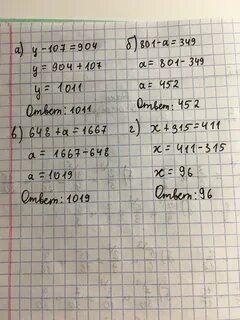 а) y - 107 = 904
y = 904 + 107
y = 1011
Ответ: 1011
б) 801 - а = 349
а = 801 - 349
а = 452
Ответ: 452
в) 648 + а = 1667
а = 1667 - 648
а = 1019
Ответ: 1019
г) x + 315 = 411
x = 411 - 315
x = 96
Ответ: 96